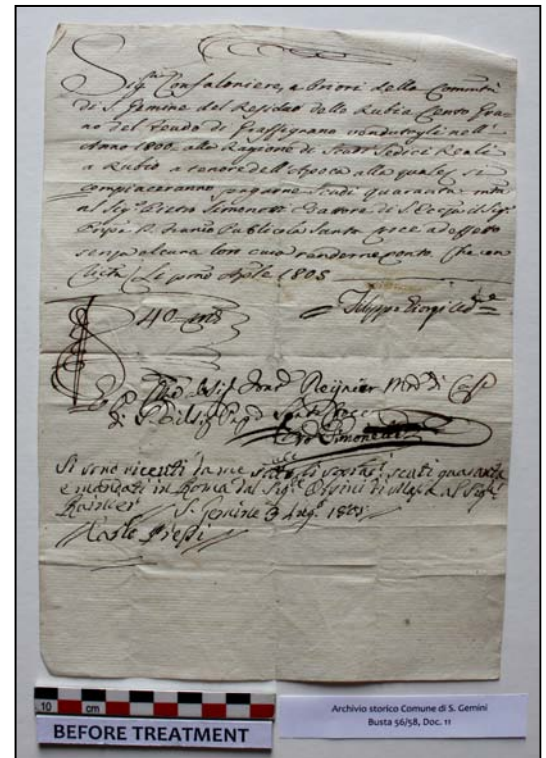 Sig.ri Confaloniere, e Priori della Comm.tà
di S. Gemine del Residuo delle Rubia Cento Gra=
no del feudo di Grassignano vendutogli nell'
Anno 1800. alla Ragione di Scudi Sedici Reali
a Rubio a tenore dell'Apoca alla quale si
compiaceranno pagarne Scudi quaranta mta
al Sig.r Pietro Simonetti Fattore di S. Ecc.za il Sig.r
Prpe D. Publicola Santa Croce ad effetto
senza alcuna loro cura renderne conto. Che con
Li primo Aple 1805
40 mta
Filippo Giorgi
Sig.r Reijnier
di Santa Croce
Simonetti
Si sono ricevuti da me sotto scudi quaranta
e mandati in Roma dal Sig.r al Sig.r
Rainier S. Gemine 3 1805
10 cm
BEFORE TREATMENT
Archivio storico Comune di S. Gemini
Busta 56/58, Doc. 11